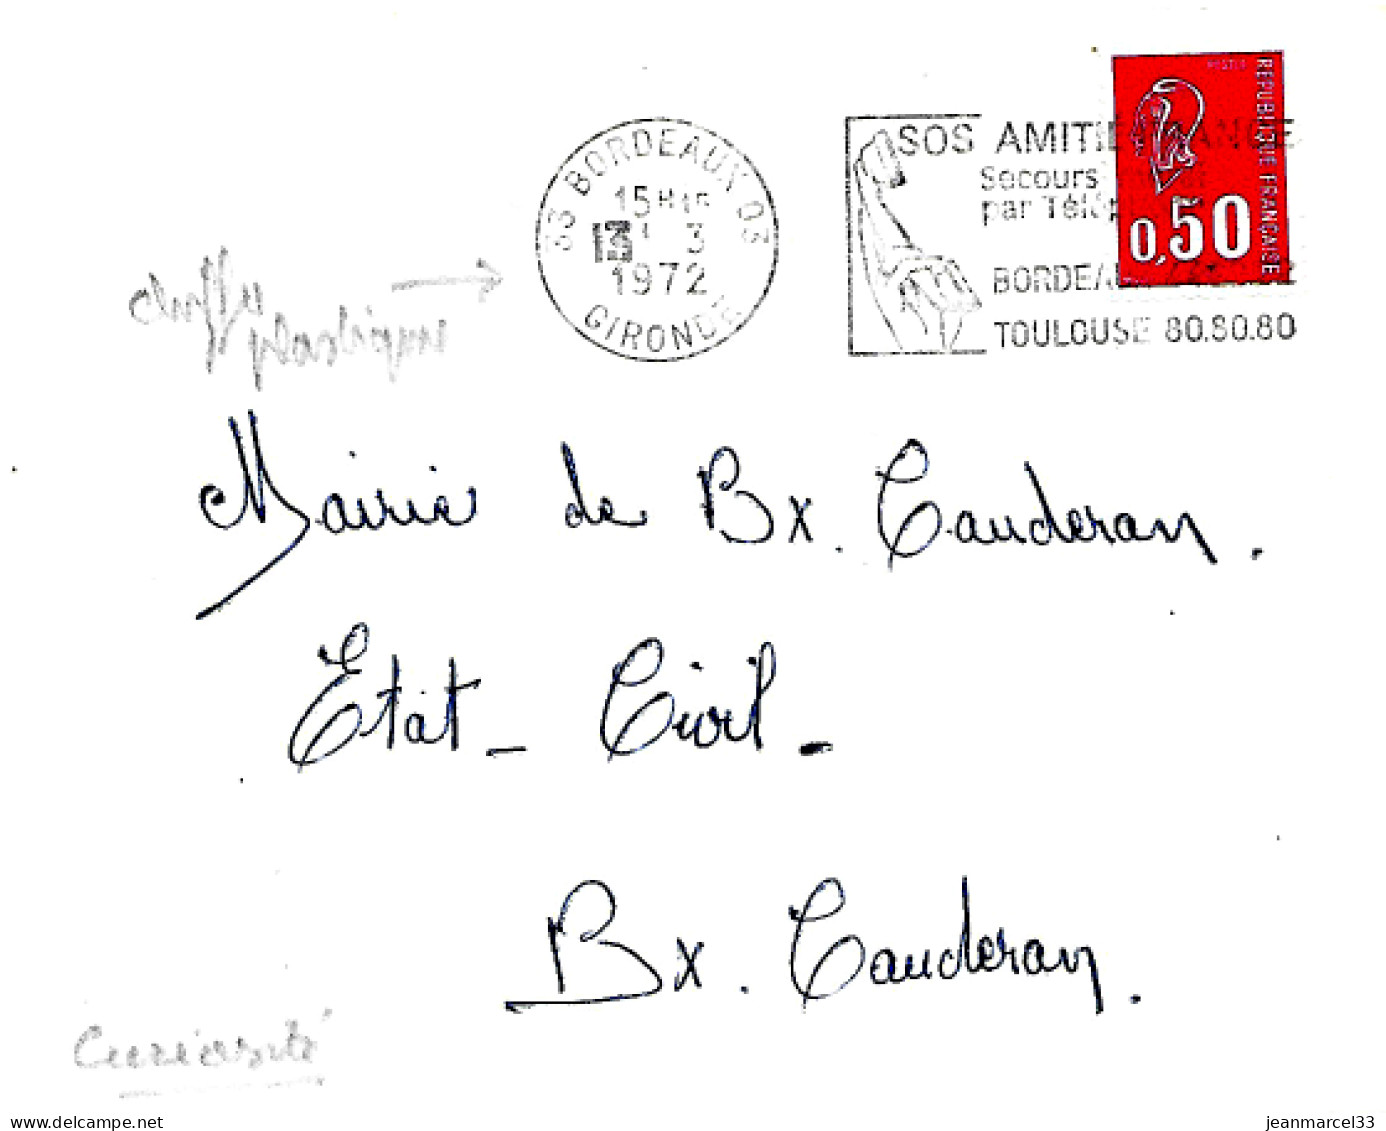 33 BORDEAUX 03
15H15
13 3
1972
GIRONDE
SOS AMITIÉ FRANCE
Secours
par Télép
BORDEAUX
TOULOUSE 80.80.80
POSTES
REPUBLIQUE FRANÇAISE
0,50
chiffre
plastique
Mairie de Bx. Cauderan.
Etat - Civil -
Bx. Cauderan.
Curiosité
delcampe.net
jeanmarcel33